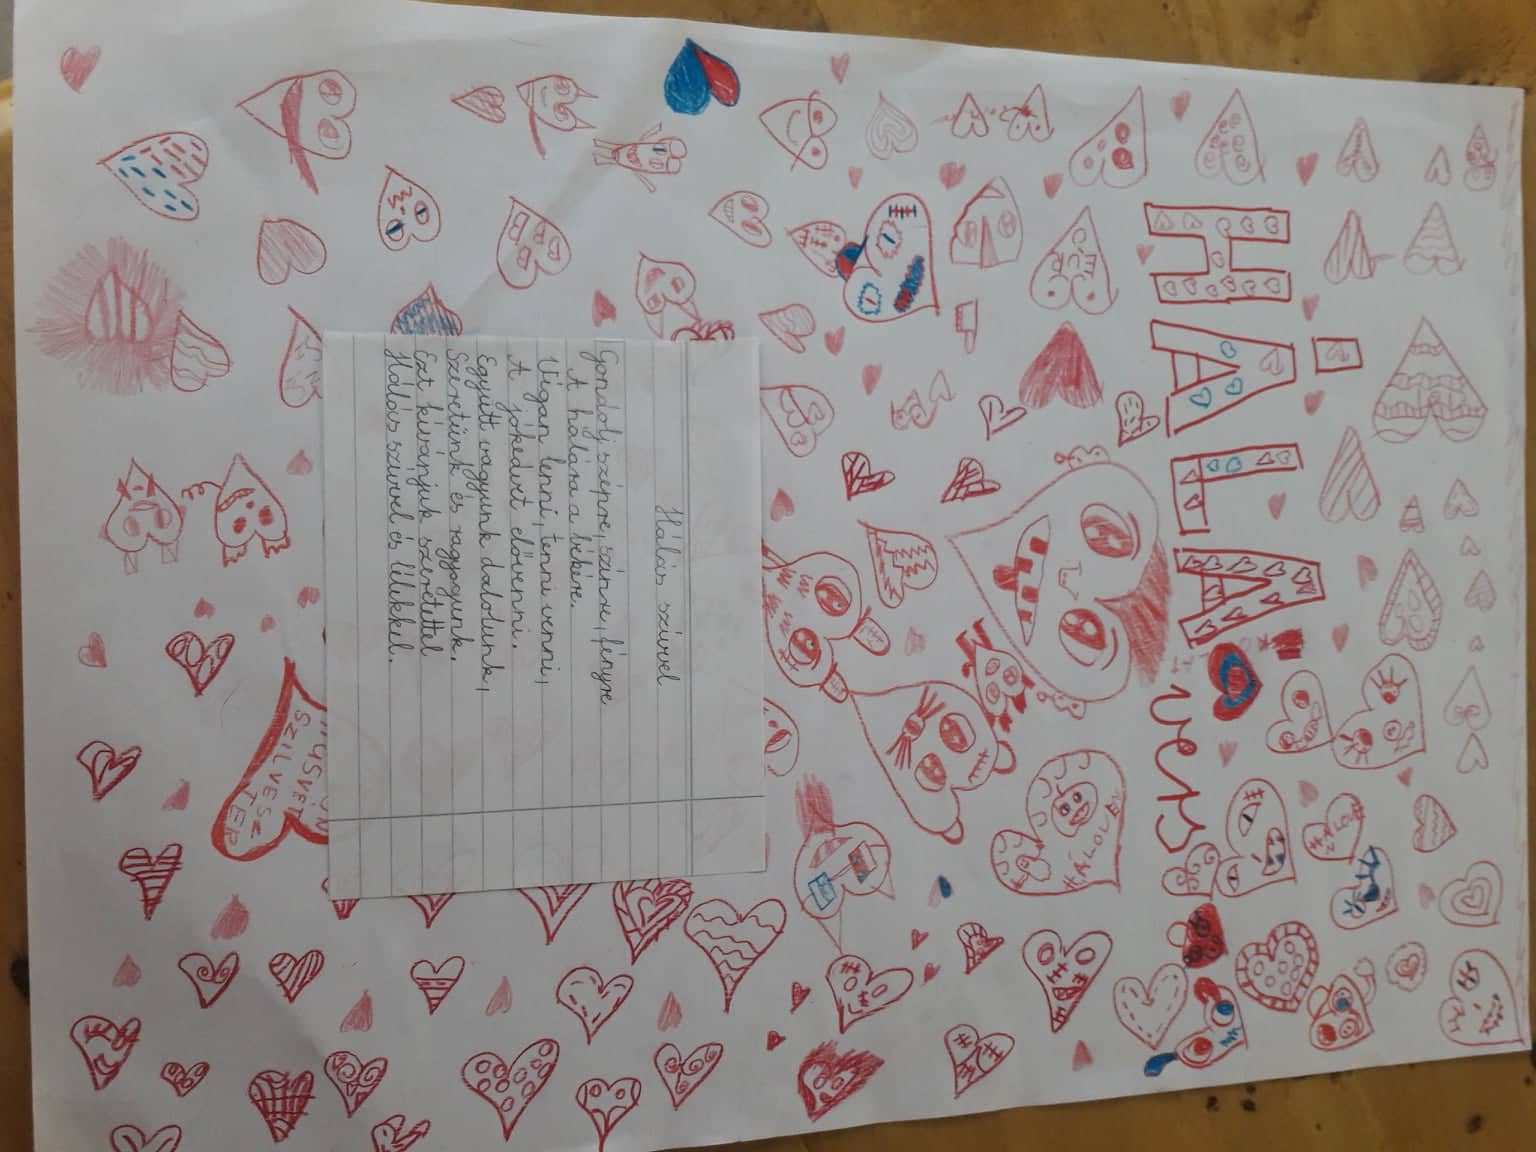 HÁLA
vers
Hálás szívvel
Gondolj szépre, színre, fényre
A hálára a békére.
Vígan lenni, tenni venni,
A jókedvet elővenni.
Együtt vagyunk dalolunk,
Szeretünk és ragyogunk.
Ezt kívánjuk szeretettel
Hálás szívvel és lélekkel.
HÁLOVE
HÚSVÉT
SZILVESZ
TER